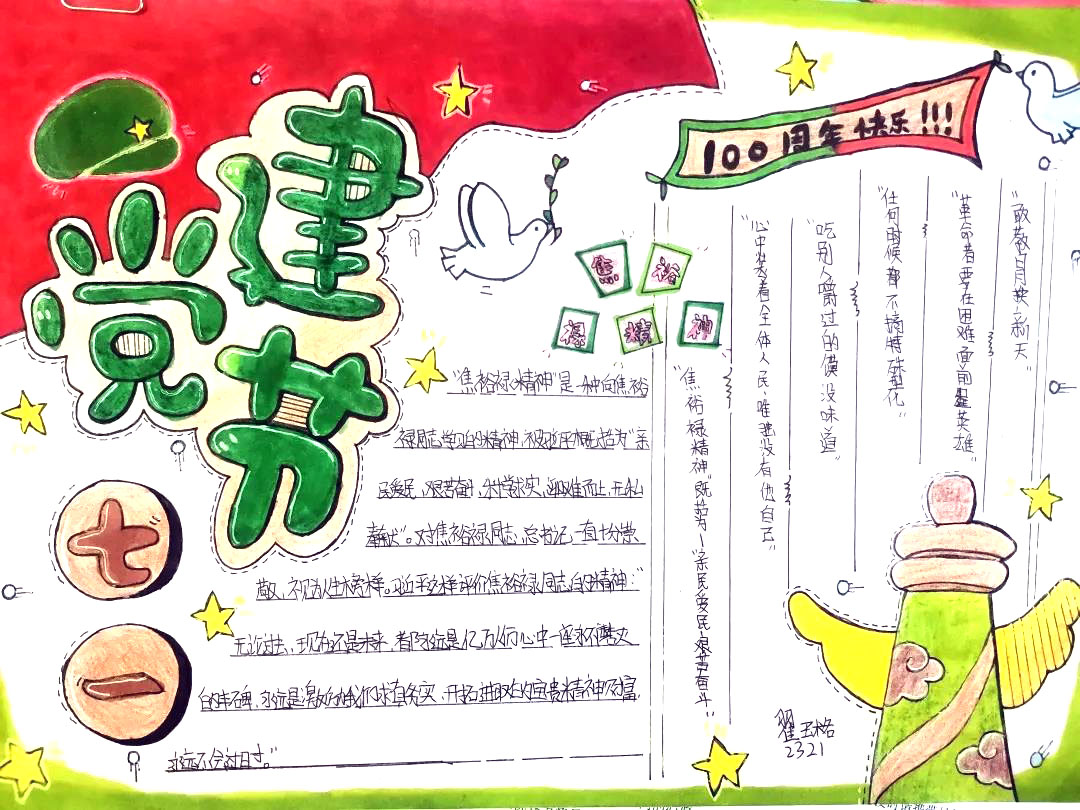 建党节
七一
100周年快乐!!!
焦裕禄精神
"焦裕禄精神"是一种向焦裕
禄同志学习的精神,被习近平概括为"亲
民爱民、艰苦奋斗、科学求实、迎难而上、无私
奉献"。对焦裕禄同志,总书记一直十分崇
敬,不视为人生榜样。习近平这样评价焦裕禄同志的精神:"
无论过去、现在还是未来,都永远是亿万人们心中一座永不磨灭
的丰碑,永远是激励我们求真务实、开拓进取的宝贵精神财富,
永远不会过时。"
"敢教日月换新天"
"革命者要在困难面前逞英雄"
"任何时候都不搞特殊化"
"吃别人嚼过的馍没味道"
"心中装着全体人民、唯独没有他自己"
"焦裕禄精神"既劳—"亲民爱民、艰苦奋斗"
翟玉格
2321